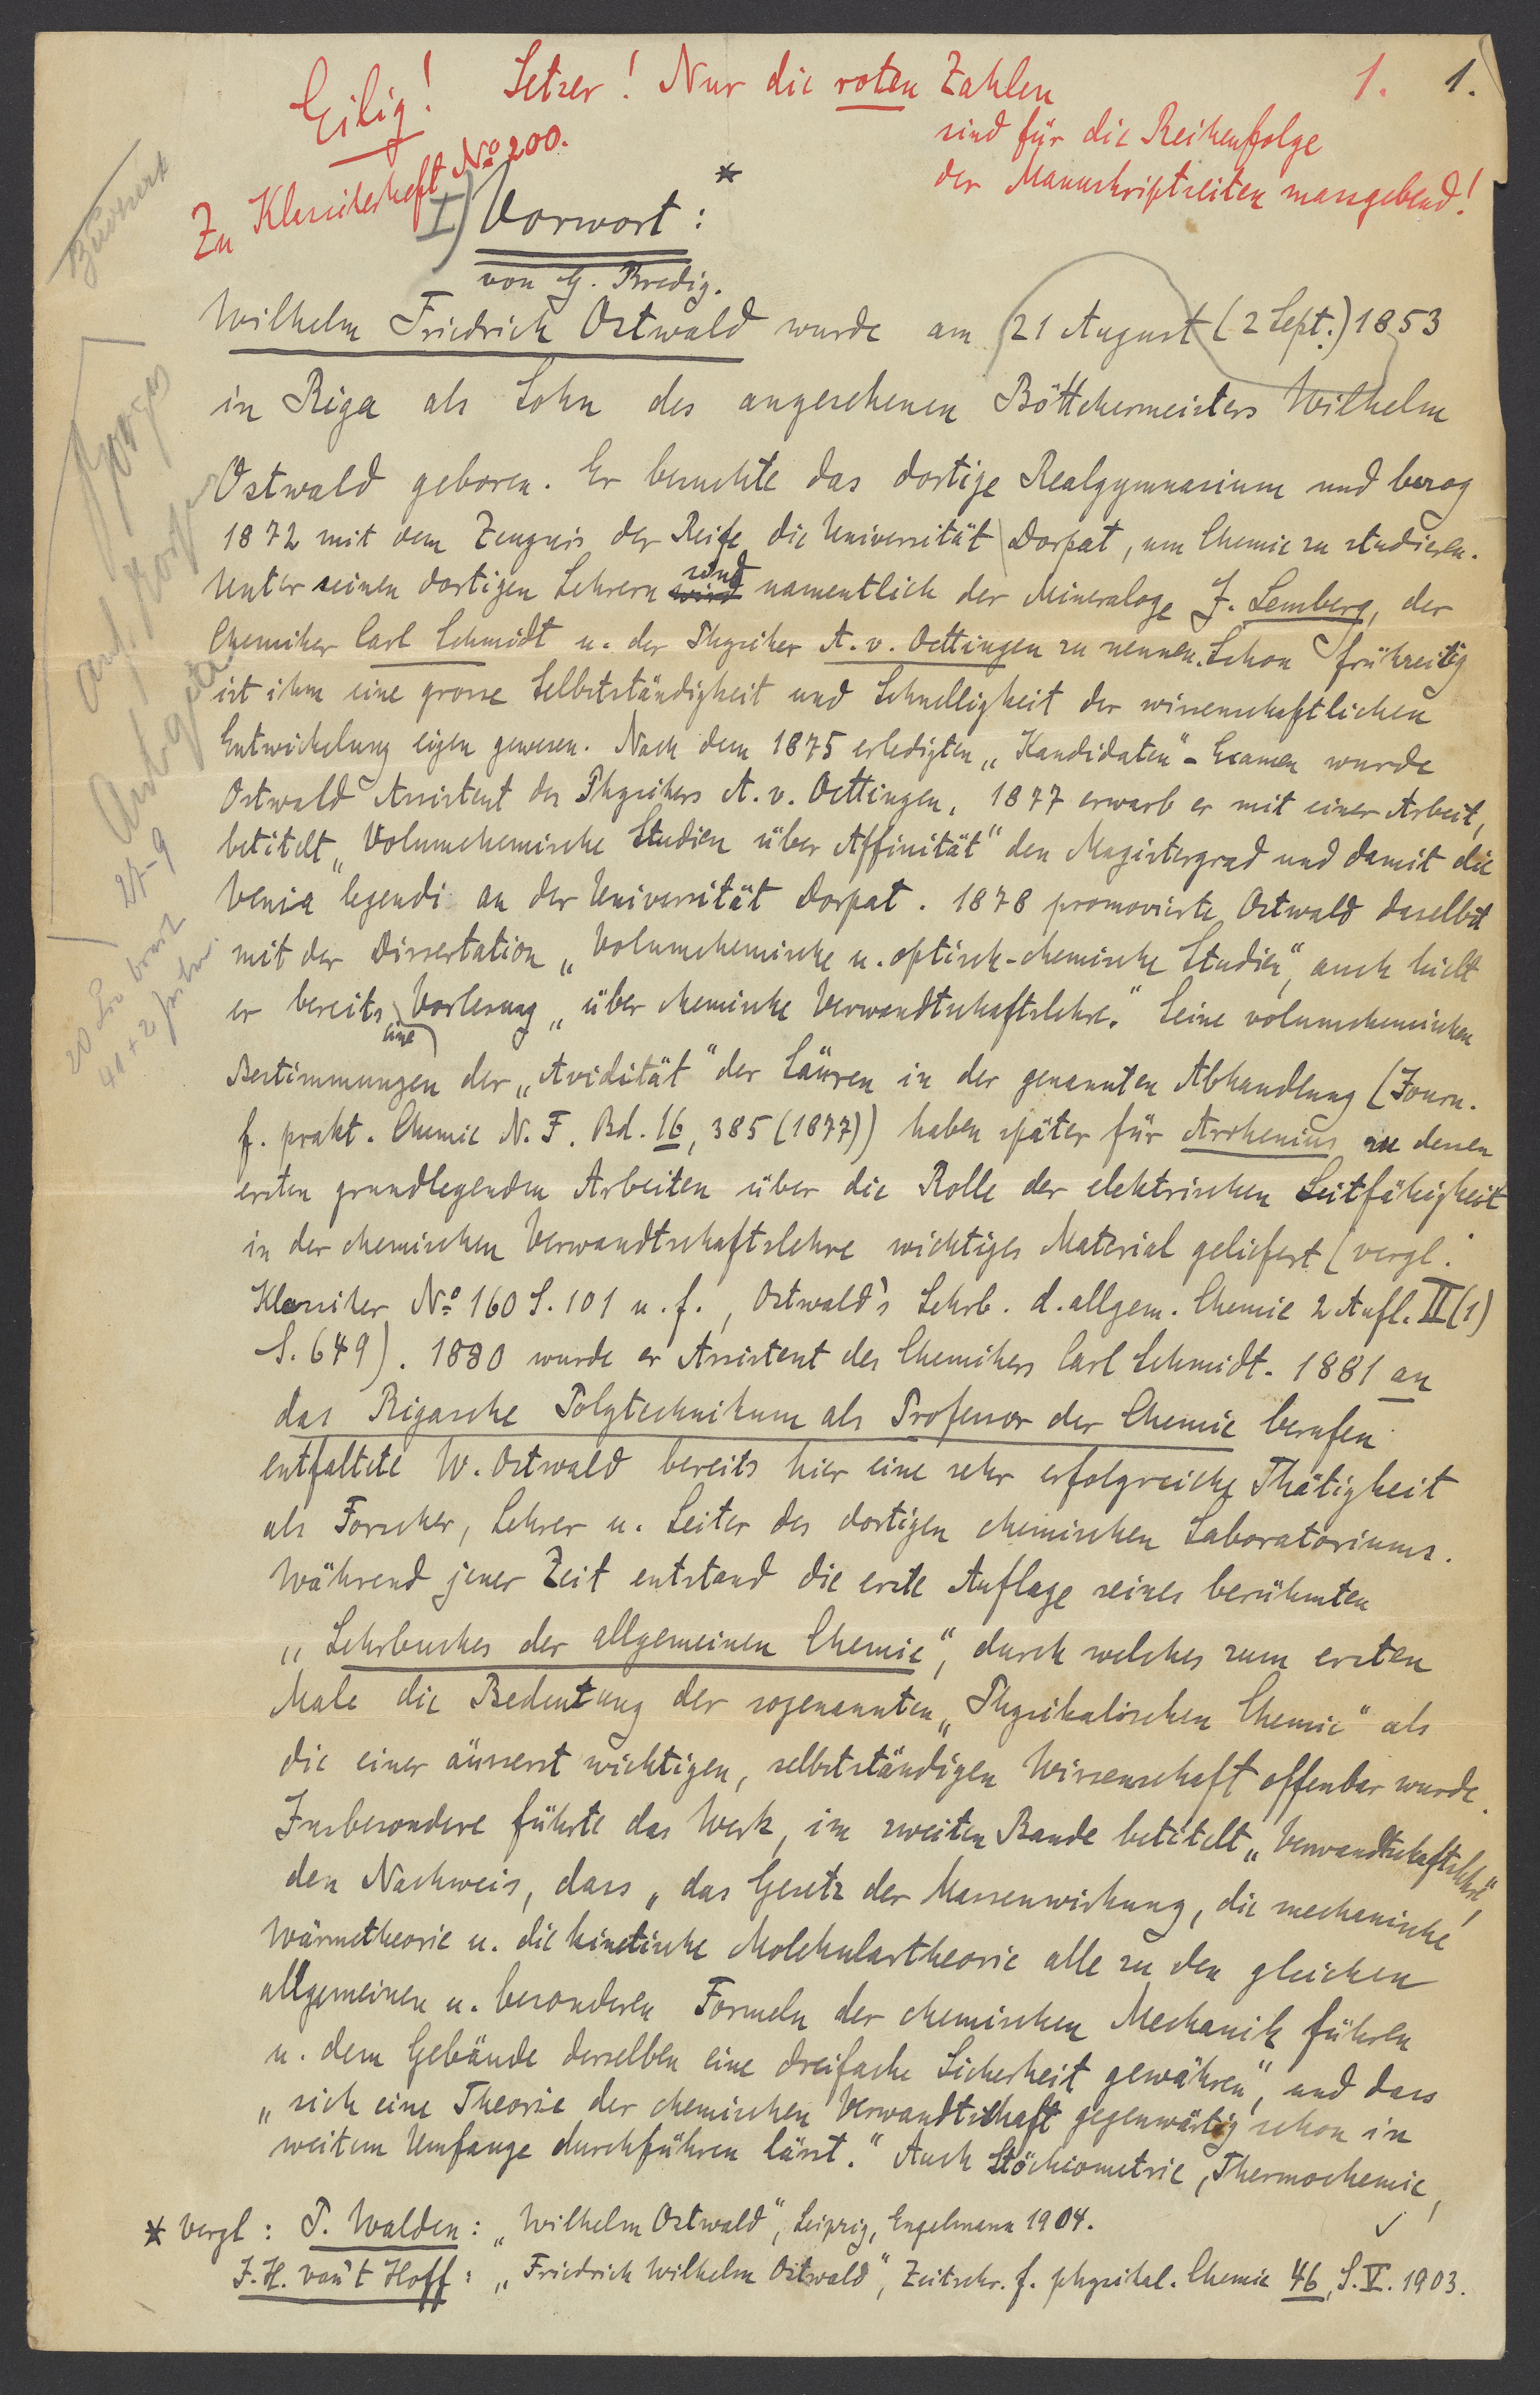 Eilig! Setzer! Nur die roten Zahlen 1. 1.
sind für die Reihenfolge
der Manuskriptseiten massgebend!
Zu Klassikerheft No 200.
I) Vorwort: *
von G. Bredig.
Wilhelm Friedrich Ostwald wurde am 21 August (2 Sept.) 1853
in Riga als Sohn des angesehenen Böttchermeisters Wilhelm
Ostwald geboren. Er besuchte das dortige Realgymnasium und bezog
1872 mit dem Zeugnis der Reife die Universität Dorpat, um Chemie zu studieren.
Unter seinen dortigen Lehrern wird sind namentlich der Mineraloge J. Lemberg, der
Chemiker Carl Schmidt u. der Physiker A. v. Oettingen zu nennen. Schon frühzeitig
ist ihm eine grosse Selbstständigkeit und Schnelligkeit der wissenschaftlichen
Entwickelung eigen gewesen. Nach dem 1875 erledigten „Kandidaten"-Examen wurde
Ostwald Assistent des Physikers A. v. Oettingen, 1877 erwarb er mit einer Arbeit,
betitelt „Volumchemische Studien über Affinität" den Magistergrad und damit die
Venia legendi an der Universität Dorpat. 1878 promovierte Ostwald daselbst
mit der Dissertation „Volumchemische u. optisch-chemische Studien", auch hielt
er bereits eine Vorlesung „über chemische Verwandtschaftslehre." Seine volumchemischen
Bestimmungen der „Avidität" der Säuren in der genannten Abhandlung (Journ.
f. prakt. Chemie N. F. Bd. 16, 385 (1877)) haben später für Arrhenius zu dessen
ersten grundlegenden Arbeiten über die Rolle der elektrischen Leitfähigkeit
in der chemischen Verwandtschaftslehre wichtiges Material geliefert (vergl.
Klassiker No 160 S. 101 u. f., Ostwald's Lehrb. d. allgem. Chemie 2 Aufl. II (1)
S. 649). 1880 wurde er Assistent des Chemikers Carl Schmidt. 1881 an
das Rigasche Polytechnikum als Professor der Chemie berufen
entfaltete W. Ostwald bereits hier eine sehr erfolgreiche Thätigkeit
als Forscher, Lehrer u. Leiter des dortigen chemischen Laboratoriums.
Während jener Zeit entstand die erste Auflage seines berühmten
„Lehrbuches der allgemeinen Chemie", durch welches zum ersten
Male die Bedeutung der sogenannten „Physikalischen Chemie" als
die einer äusserst wichtigen, selbstständigen Wissenschaft offenbar wurde.
Insbesondere führte das Werk, im zweiten Bande betitelt „Verwandtschaftslehre",
den Nachweis, dass „das Gesetz der Massenwirkung, die mechanische
Wärmetheorie u. die kinetische Molekulartheorie alle zu den gleichen
allgemeinen u. besonderen Formeln der chemischen Mechanik führen
u. dem Gebäude derselben eine dreifache Sicherheit gewähren", und dass
„sich eine Theorie der chemischen Verwandtschaft gegenwärtig schon in
weitem Umfange durchführen lässt." Auch Stöchiometrie, Thermochemie,
* Vergl: P. Walden: „Wilhelm Ostwald", Leipzig, Engelmann 1904.
J. H. van't Hoff: „Friedrich Wilhelm Ostwald", Zeitschr. f. physikal. Chemie 46, S. V. 1903.